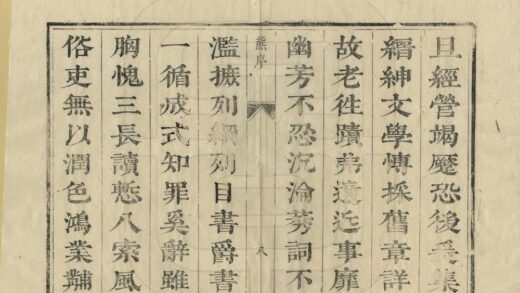 旦經管竭蹷恐後爰集
縉紳文學愽採舊章詳
故老徃蹟弗遺近事靡
幽芳不忍沉淪莠詞不
熊序
八
濫摭列綱列目書爵書
一循成式知罪奚辭雖
胸愧三長讀慙八索風
俗吏無以潤色鴻業黼